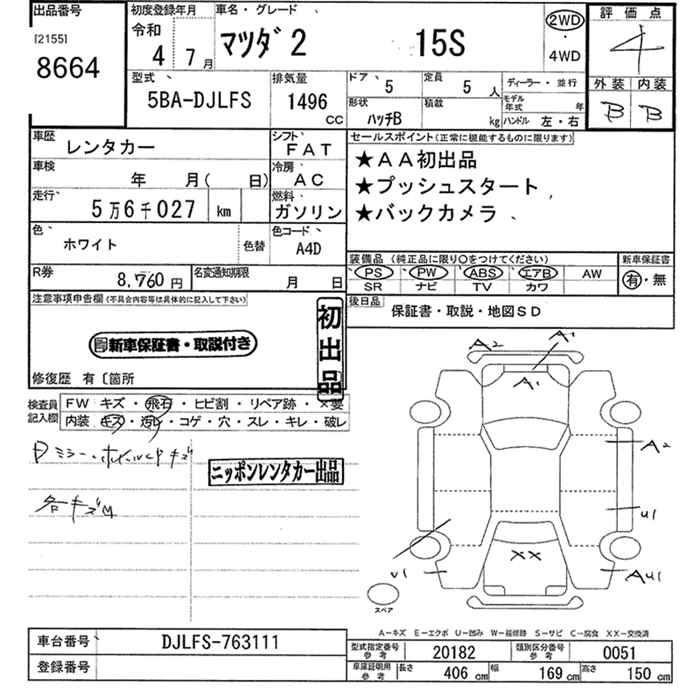 出品番号
[2155]
8664
初度登録年月
令和
4年 7月
車名・グレード
マツダ2 15S
2WD
・
4WD
評価点
4
外装 内装
B B
型式
5BA-DJLFS
排気量
1496
CC
ドア 5
定員 5 人
ディーラー・並行
形状 ハッチB
積載 kg
モデル年式 年
ハンドル 左・右
車歴 レンタカー
シフト FAT
車検 年 月( 日)
冷房 AC
走行 5万6千027 km
燃料 ガソリン
色 ホワイト
色替
色コード A4D
R券 8,760円
名変通知期限 月 日
セールスポイント(正常に機能するものに限ります)
★AA初出品
★プッシュスタート
★バックカメラ
装備品(純正品に限り○をつけてください)
PS PW ABS エアB AW
SR ナビ TV カワ
新車保証書
有・無
後日品
保証書・取説・地図SD
注意事項申告欄(不具合内容等は具体的に記入して下さい)
新車保証書・取説付き
初出品
修復歴 有〔箇所
検査員記入欄
FW キズ・飛石・ヒビ割・リペア跡・×要
内装 キズ・汚レ・コゲ・穴・スレ・キレ・破レ
ニッポンレンタカー出品
各キズM
A2 A1
A1
A2
U1
XX
U1
AU1
スペア
A-キズ E-エクボ U-凹み W-補修跡 S-サビ C-腐食 XX-交換済
車台番号 DJLFS-763111
登録番号
型式指定番号参考 20182
類別区分番号参考 0051
車庫証明用参考 長さ 406cm 幅 169cm 高さ 150cm